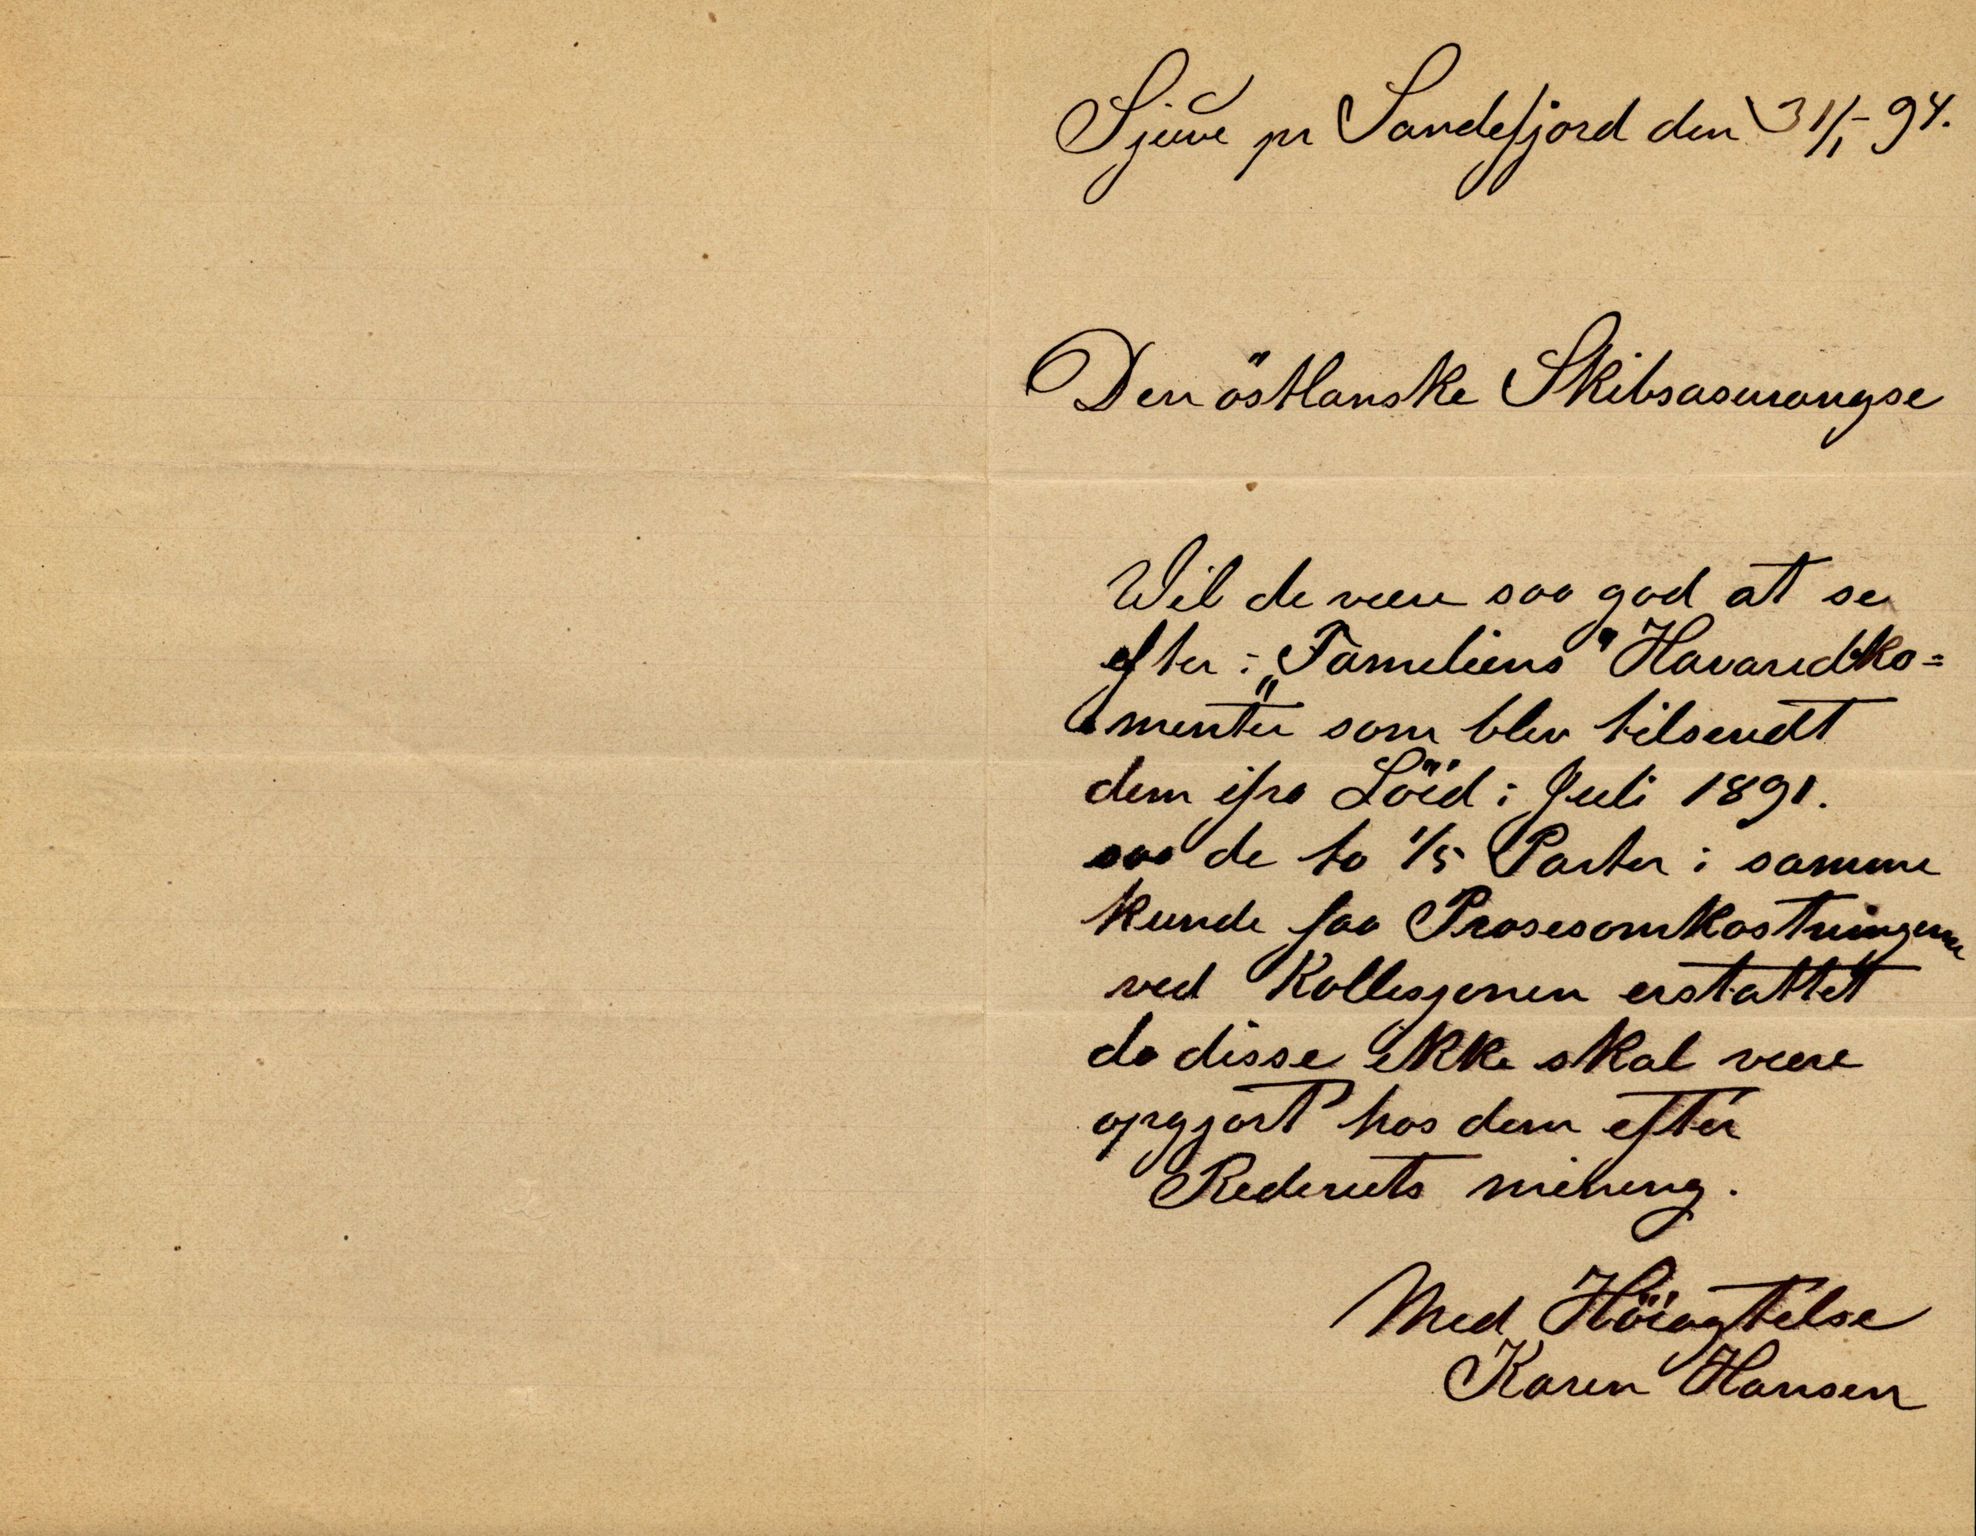 Sjuve pr Sandefjord den 31/1-94.
Den östlanske Skibsasurangse
Vil de være saa god at se
efter i „Familiens" Havaridko=
menter som blev tilsendt
dem ifra Löid i Juli 1891.
saa de to 1/5 Parter i samme
kunde faa Prosesomkostningerne
ved Kollesjonen erstattet
da disse ikke skal være
opgjort hos dem efter
Rederiets mening.
Med Höiagtelse
Karen Hansen